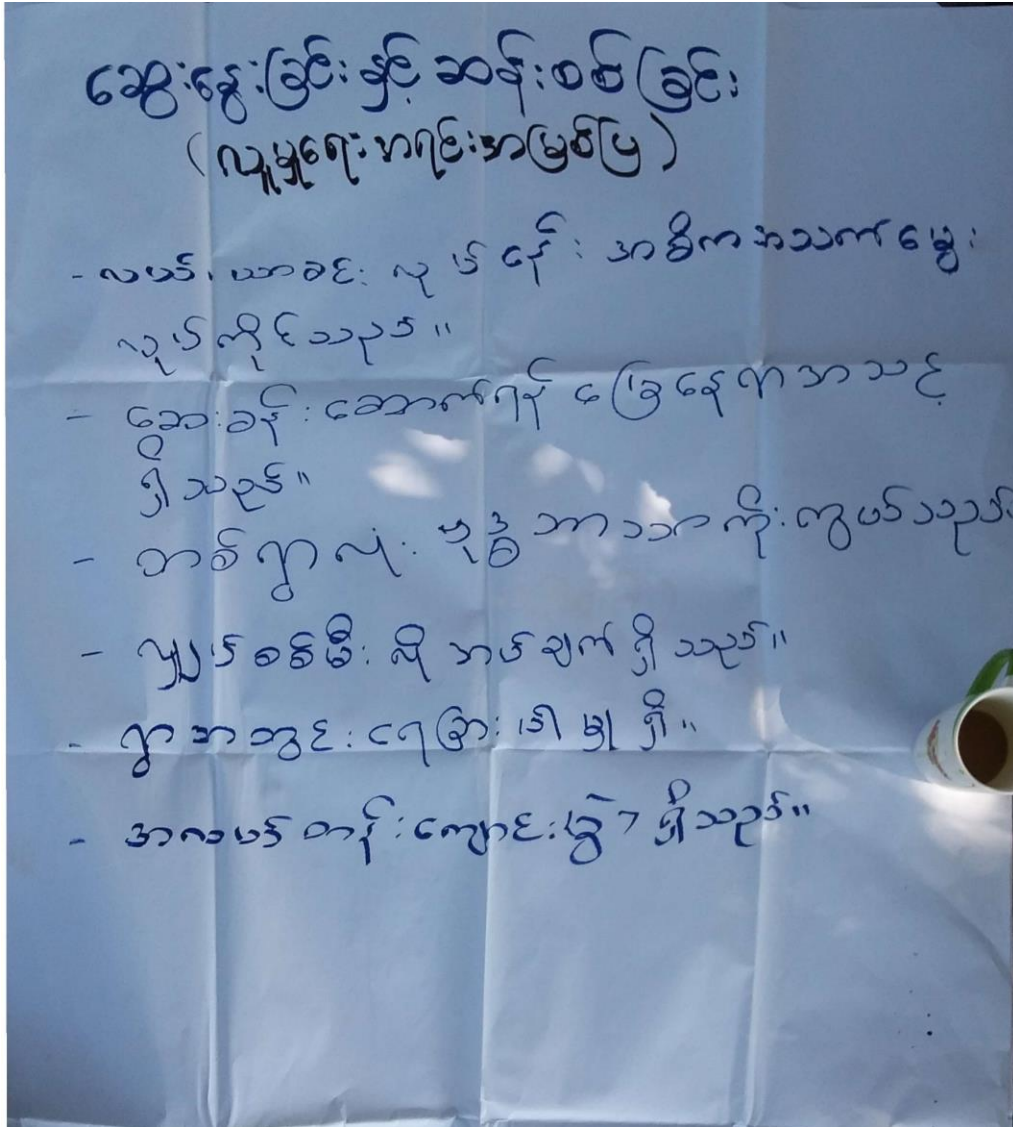 ဆွေးနွေးခြင်းနှင့် ဆန်းစစ်ခြင်း
(လူမှုရေးအရင်းအမြစ်ပြ)
- လယ်၊ ယာခင်း လုပ်ငန်း အဓိကအသက်မွေး
လုပ်ကိုင်သည်။
- ဆေးခန်းဆောက်ရန် မြေနေရာအသင့်
ရှိသည်။
- တစ်ရွာလုံး ဗုဒ္ဓဘာသာကိုးကွယ်သည်
- လျှပ်စစ်မီး လိုအပ်ချက်ရှိသည်။
- ရွာအတွင်း ရေရှားပါမှု ရှိ။
- အလယ်တန်းကျောင်းခွဲ ၁ ရှိသည်။